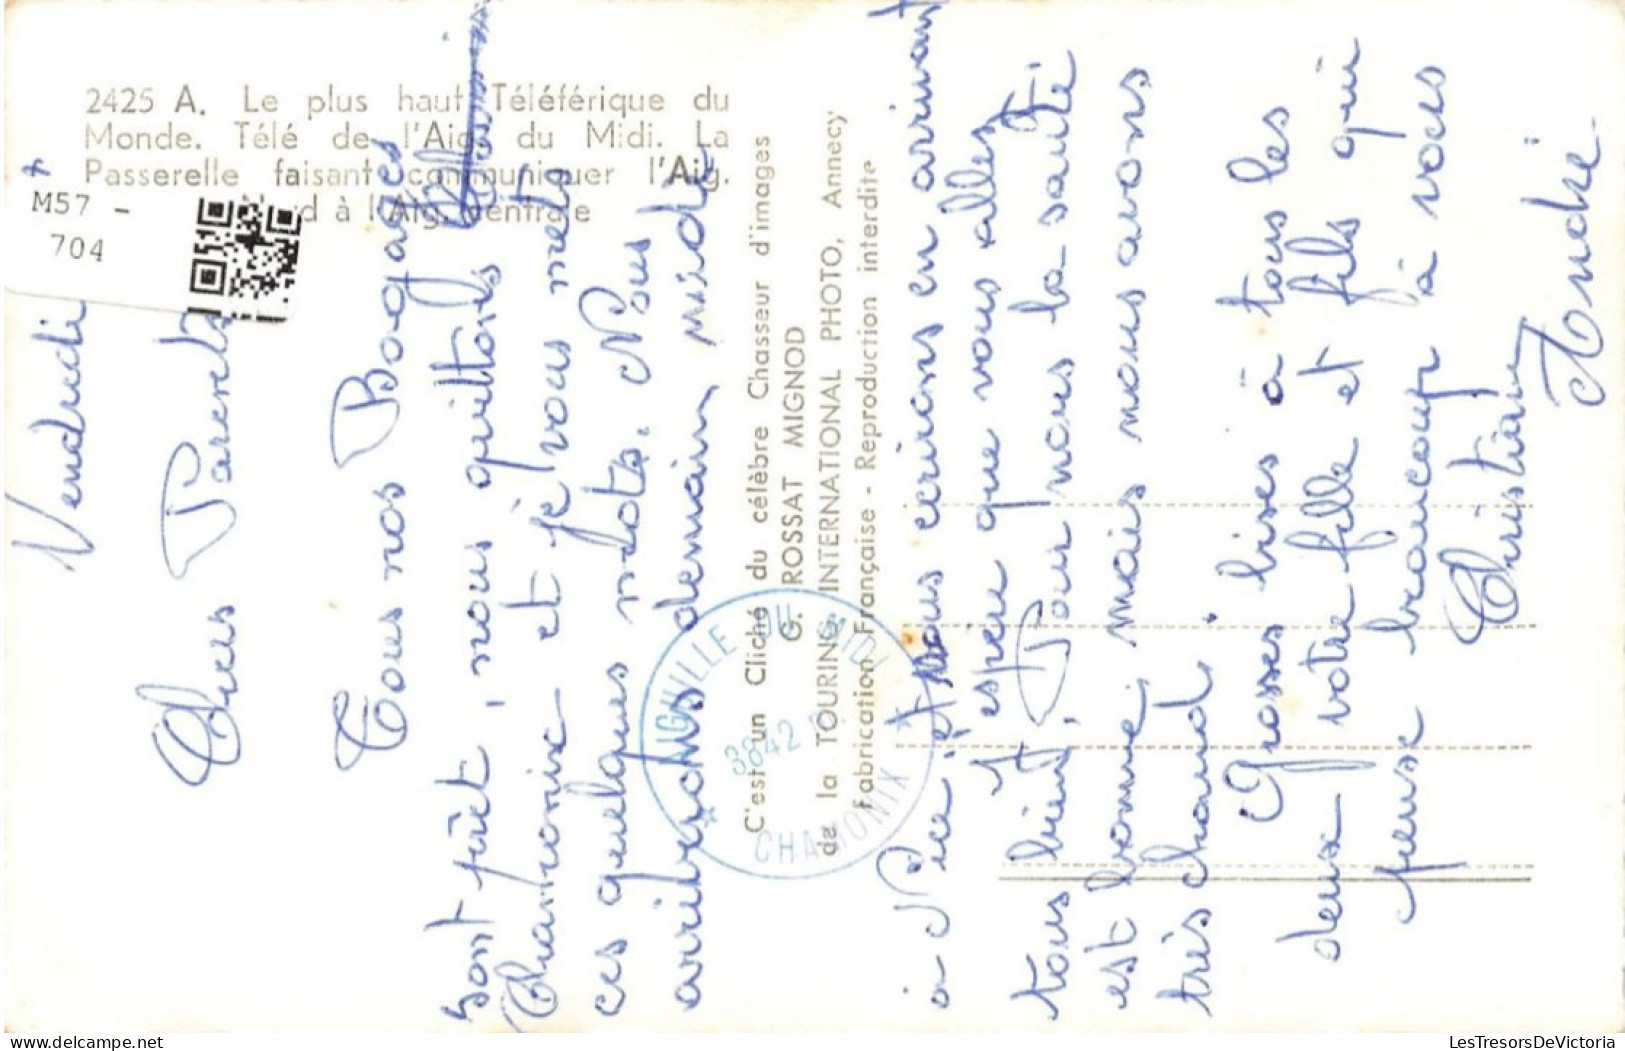 2425 A. Le plus haut Téléférique du
Monde. Télé de l'Aig. du Midi. La
Passerelle faisant communiquer l'Aig.
d à l'Aig. Centrale
M57 -
704
C'est un Cliché du célèbre Chasseur d'images
G. ROSSAT MIGNOD
de la TOURING INTERNATIONAL PHOTO, Annecy
Fabrication Française - Reproduction interdite
AIGUILLE DU MIDI
3842
CHAMONIX
Vendredi
Chers Parents
Tous nos Bagages
sont prêt, nous quittons
Chamonix et je vous mets
ces quelques mots. Nous
arriverons demain midi
à Nice. nous écrirons en arrivant
J'espère que vous allez
tous bien, Pour nous la santé
est bonne, mais nous avons
très chaud.
Grosses bises à tous les
deux votre fille et fils qui
pense beaucoup à vous
Christiane
André
delcampe.net
LesTresorsDeVictoria